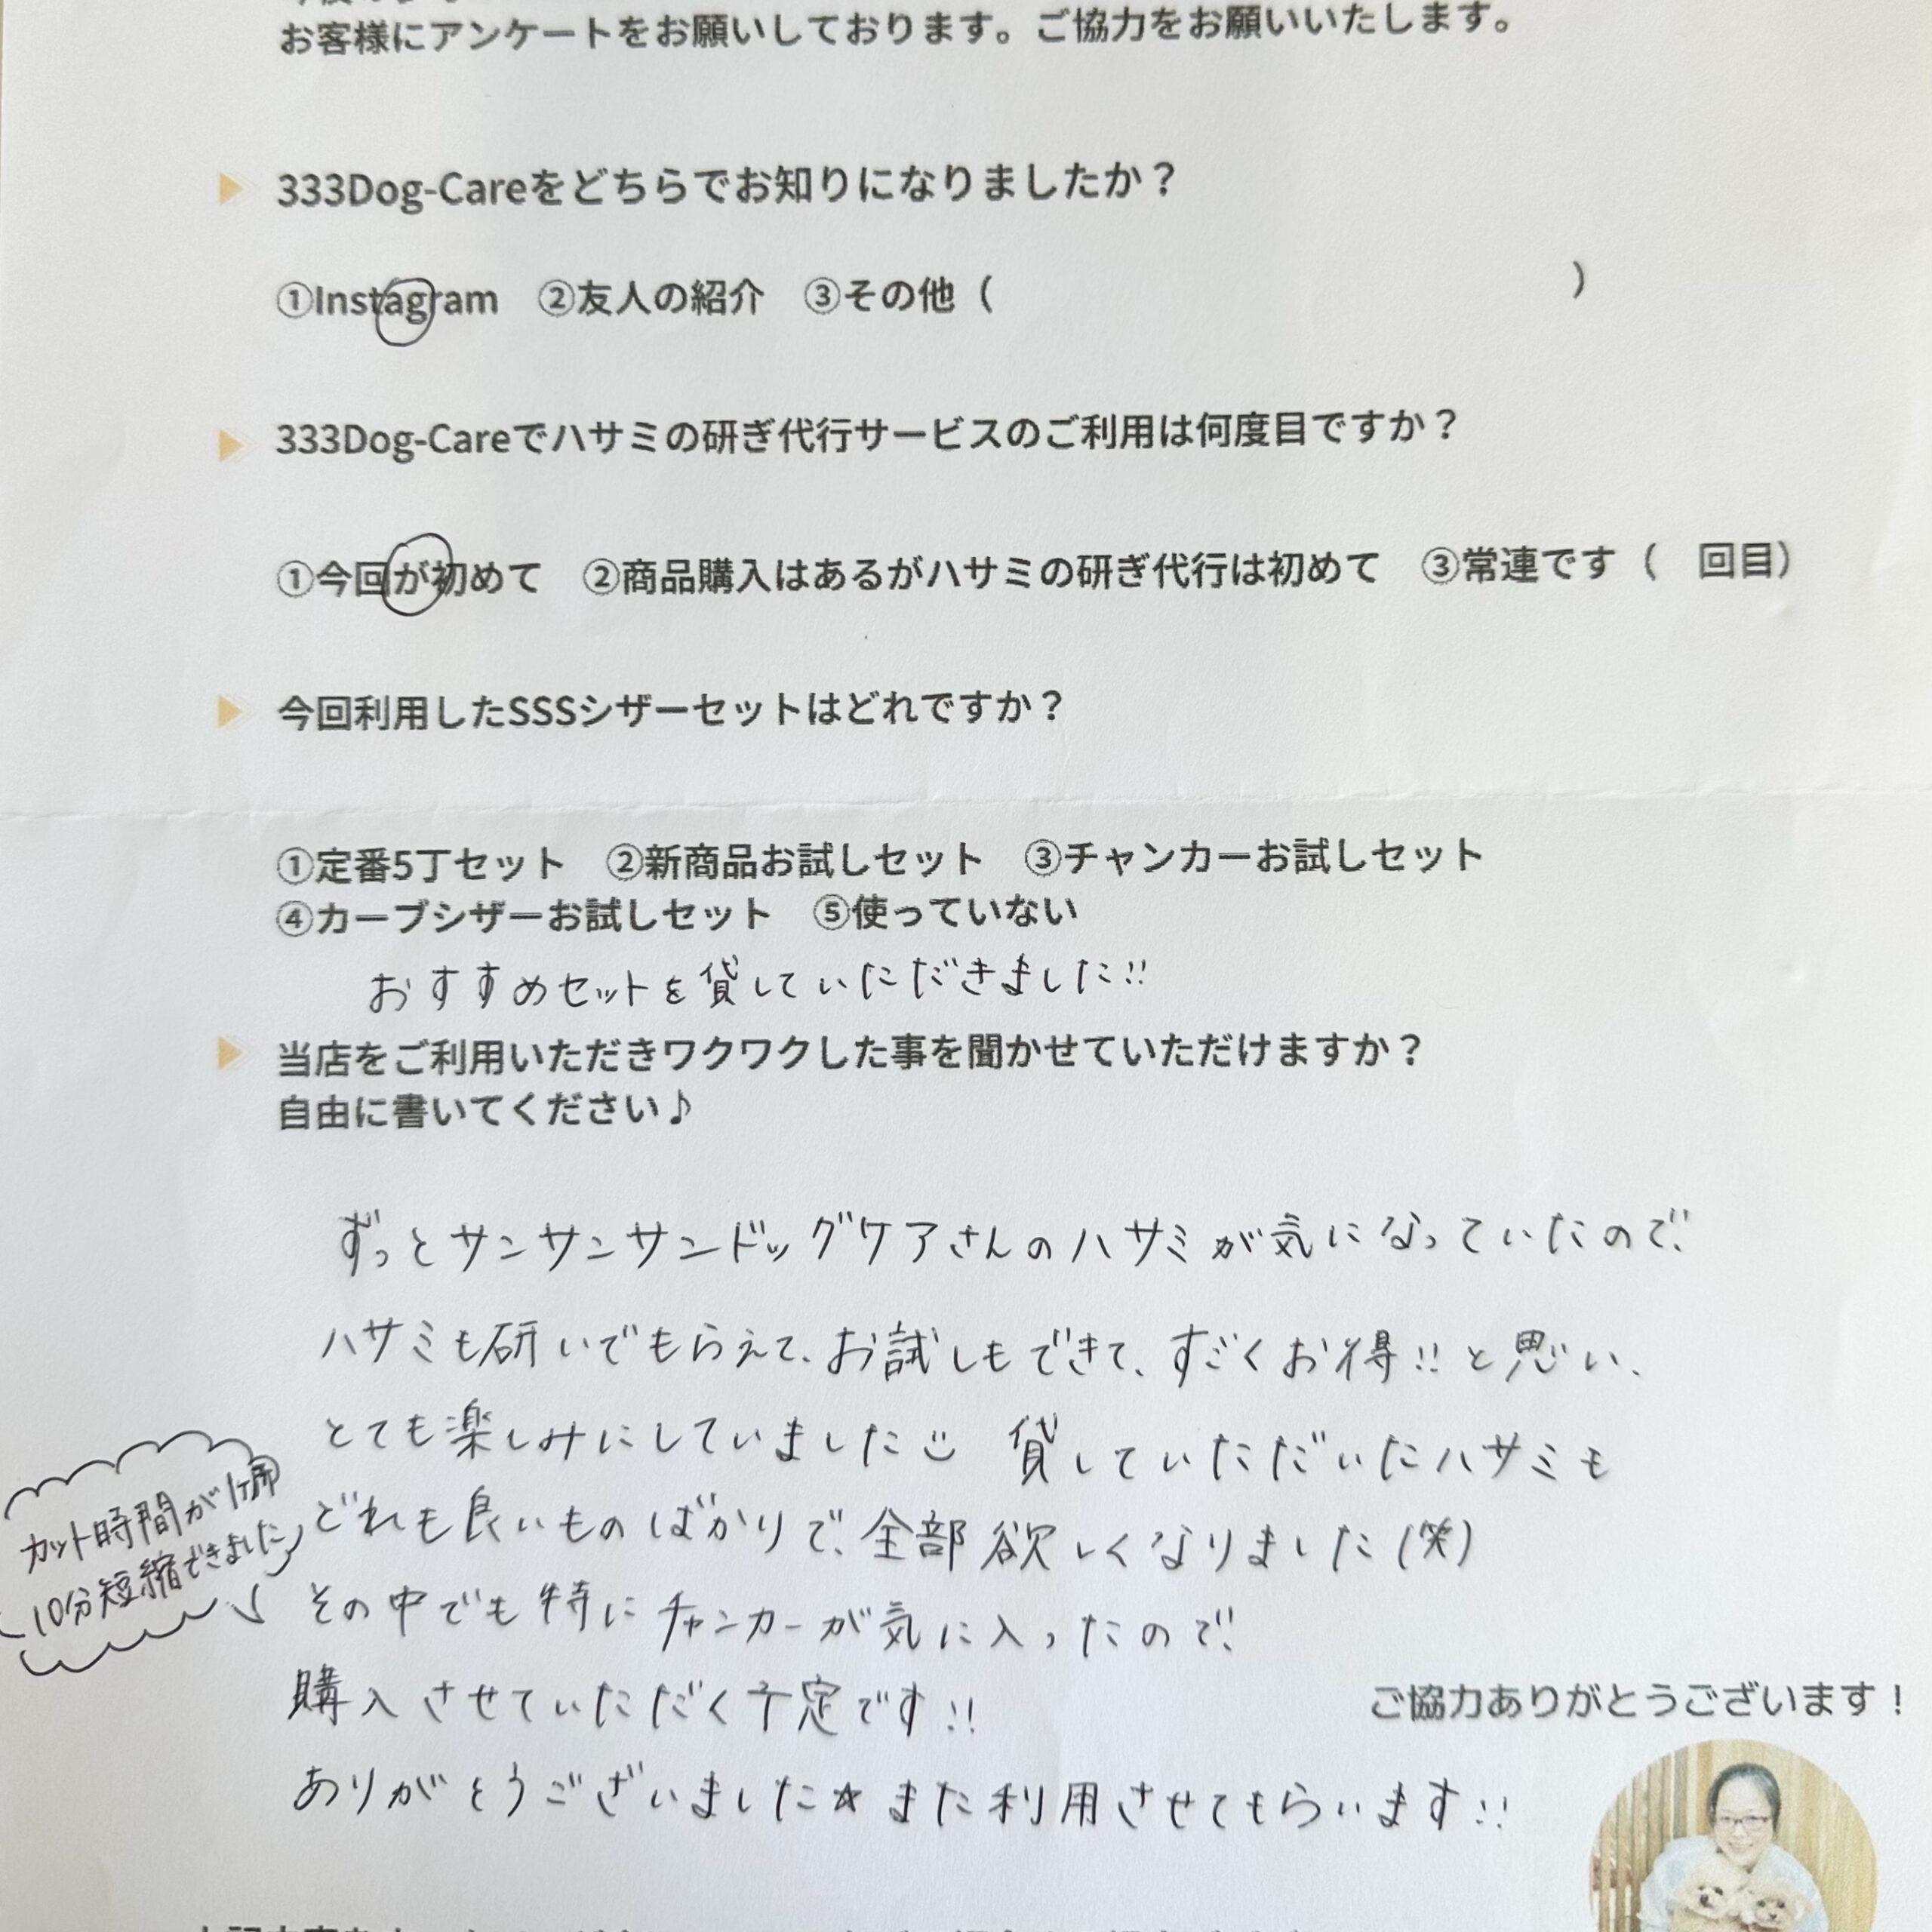 お客様にアンケートをお願いしております。ご協力をお願いいたします。
333Dog-Careをどちらでお知りになりましたか？
①Instagram ②友人の紹介 ③その他（ ）
333Dog-Careでハサミの研ぎ代行サービスのご利用は何度目ですか？
①今回が初めて ②商品購入はあるがハサミの研ぎ代行は初めて ③常連です（ 回目）
今回利用したSSSシザーセットはどれですか？
①定番5丁セット ②新商品お試しセット ③チャンカーお試しセット
④カーブシザーお試しセット ⑤使っていない
おすすめセットを貸していただきました!!
当店をご利用いただきワクワクした事を聞かせていただけますか？
自由に書いてください♪
ずっとサンサンサンドッグケアさんのハサミが気になっていたので、
ハサミも研いでもらえて、お試しもできて、すごくお得!!と思い、
とても楽しみにしていました 貸していただいたハサミも
どれも良いものばかりで、全部欲しくなりました(笑)
その中でも特にチャンカーが気に入ったので、
購入させていただく予定です!!
ありがとうございました☆また利用させてもらいます!!
カット時間が1ヶ所
10分短縮できました
ご協力ありがとうございます！